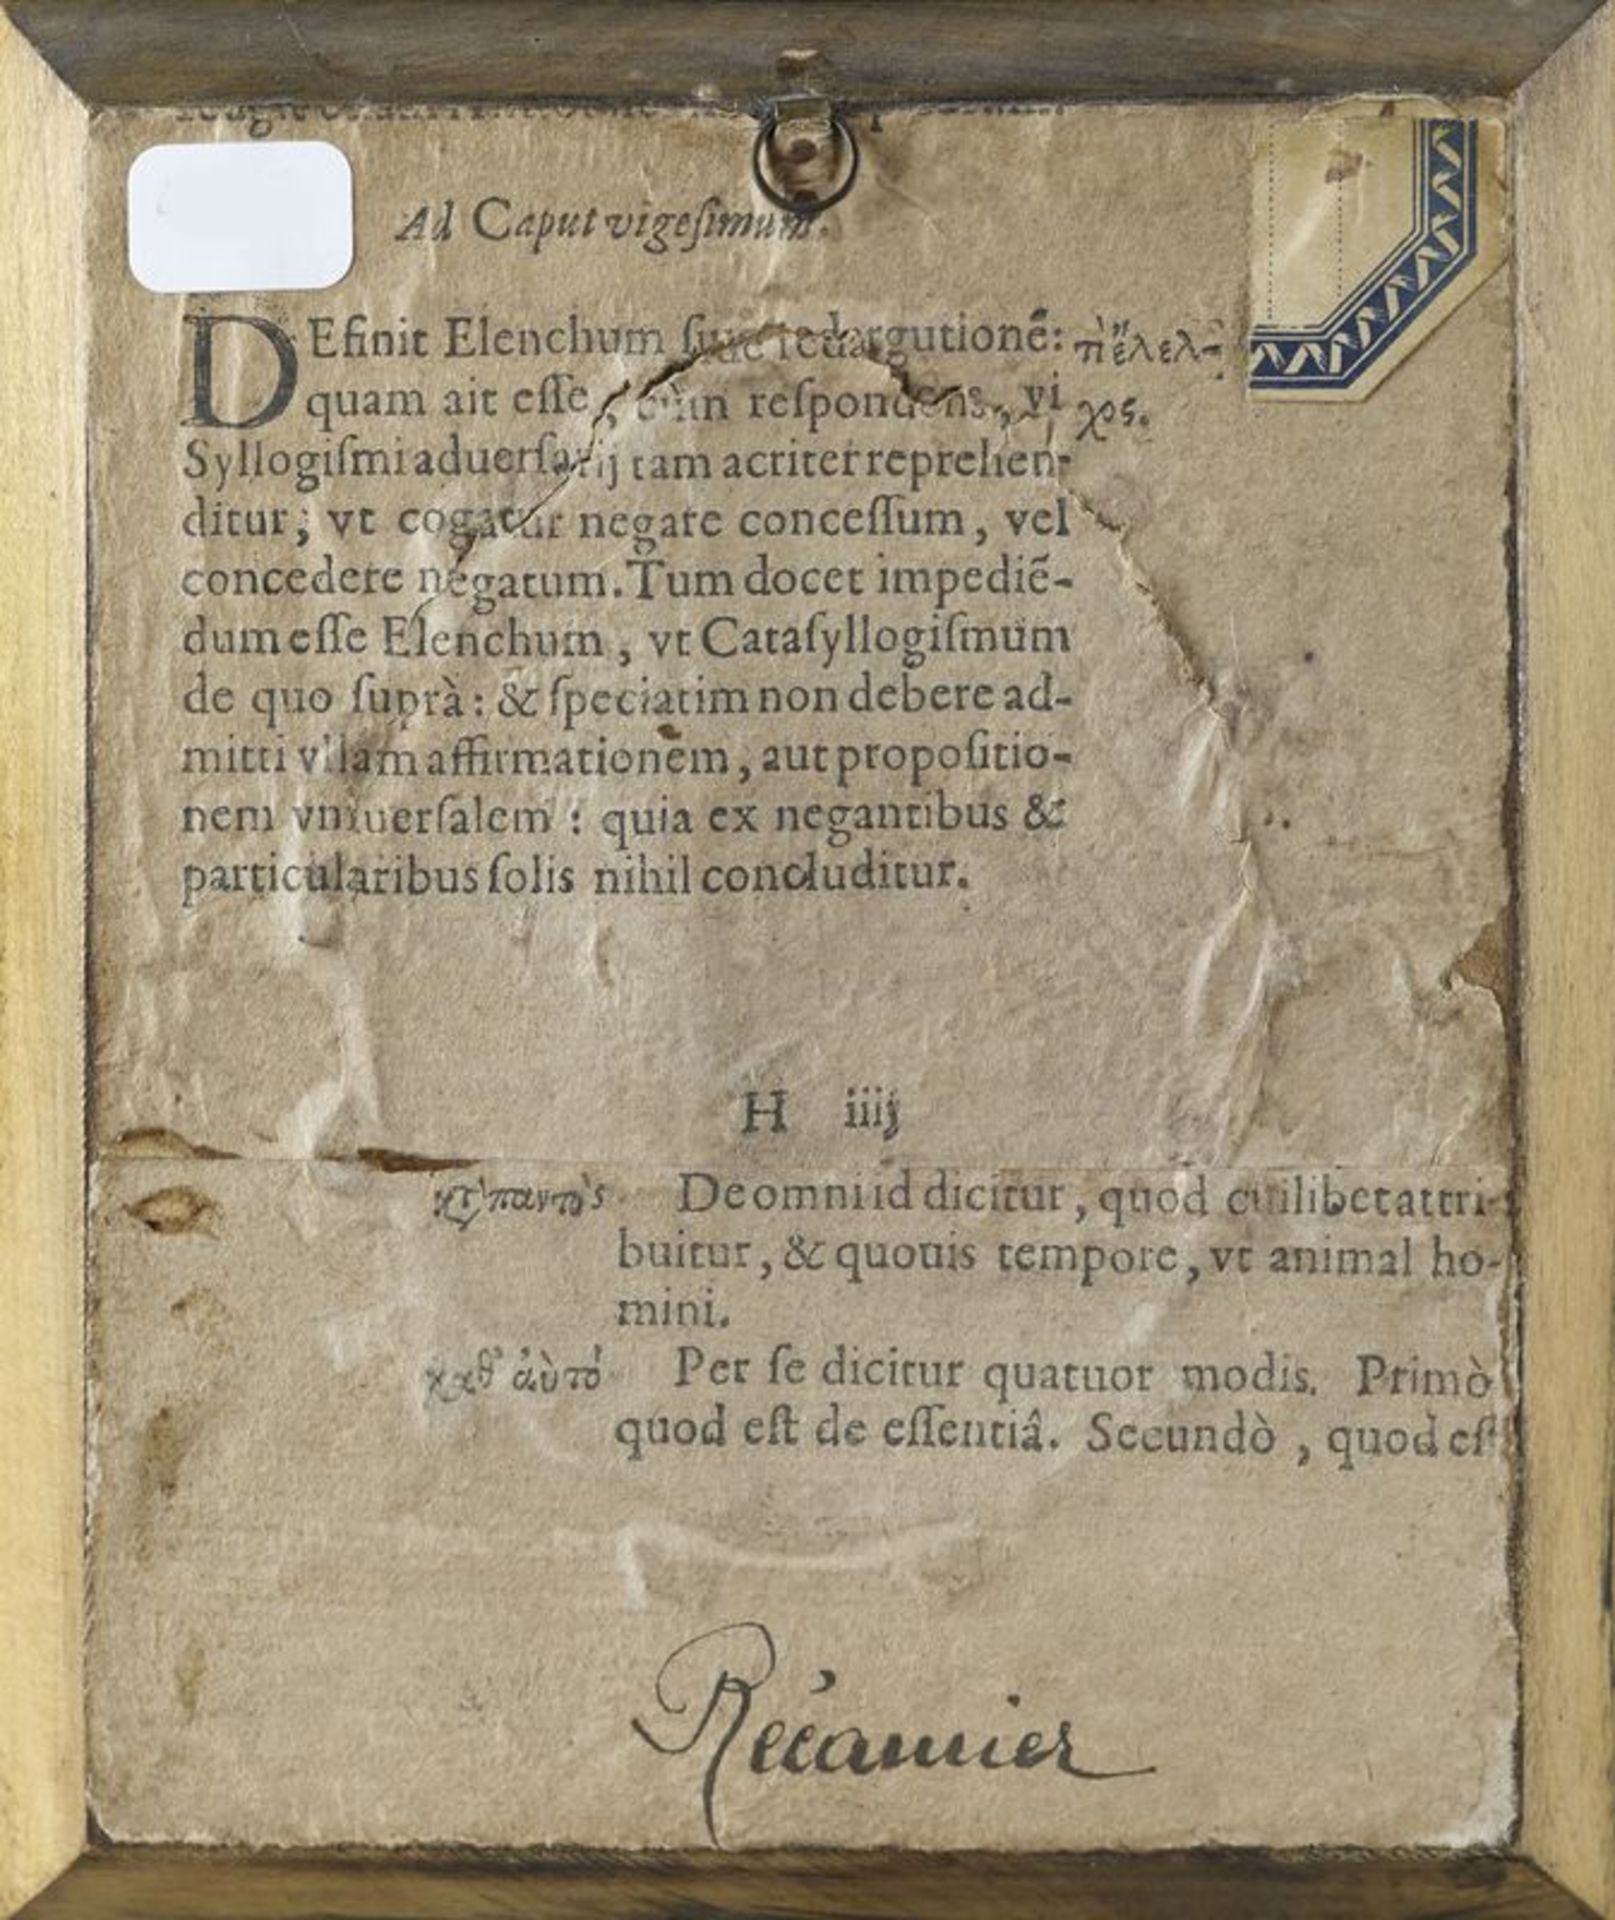 Ad Caput vigeſimum.
DEfinit Elenchum ſiue redargutionẽ:
quam ait eſſe, cùm reſpondens, vi
χος.
Syllogiſmi aduerſarij tam acriter reprehen-
ditur, vt cogatur negare conceſſum, vel
concedere negatum. Tum docet impediẽ-
dum eſſe Elenchum, vt Cataſyllogiſmum
de quo ſuprà: & ſpeciatim non debere ad-
mitti vllam affirmationem, aut propoſitio-
nem vniuerſalem: quia ex negantibus &
particularibus ſolis nihil concluditur.
H iiij
παντὸς De omni id dicitur, quod cuilibet attri-
buitur, & quouis tempore, vt animal ho-
mini.
καθ' αὑτό Per ſe dicitur quatuor modis. Primò
quod eſt de eſſentiâ. Secundò, quod eſt
Récamier